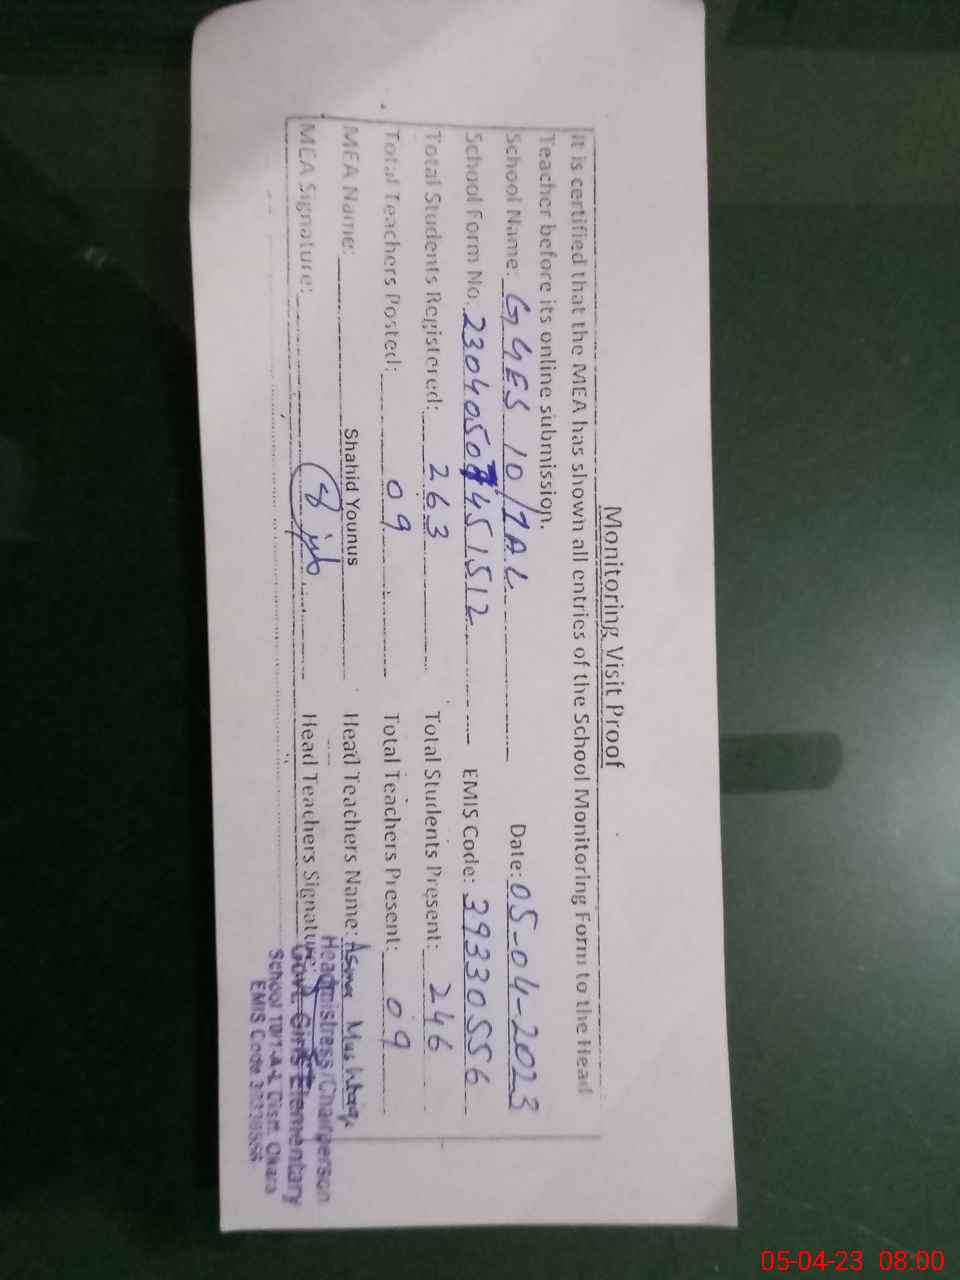 Monitoring Visit Proof
It is certified that the MEA has shown all entries of the School Monitoring Form to the Head
Teacher before its online submission.
School Name: GGES 10/1A.L Date: 05-04-2023
School Form No. 2304050745 1512 EMIS Code: 39330556
Total Students Registered: 263 Total Students Present: 246
Total Teachers Posted: 09 Total Teachers Present: 09
MEA Name: Shahid Younus Head Teachers Name: Asma Mushtaq
MEA Signature: Head Teachers Signature:
Headmistress/Chairperson
Govt. Girls Elementary
School 10/1-A-L Distt. Okara
EMIS Code 39330556
05-04-23 08:00